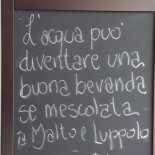 L'acqua può
diventare una
buona bevanda
se mescolata
a Malto e Luppolo